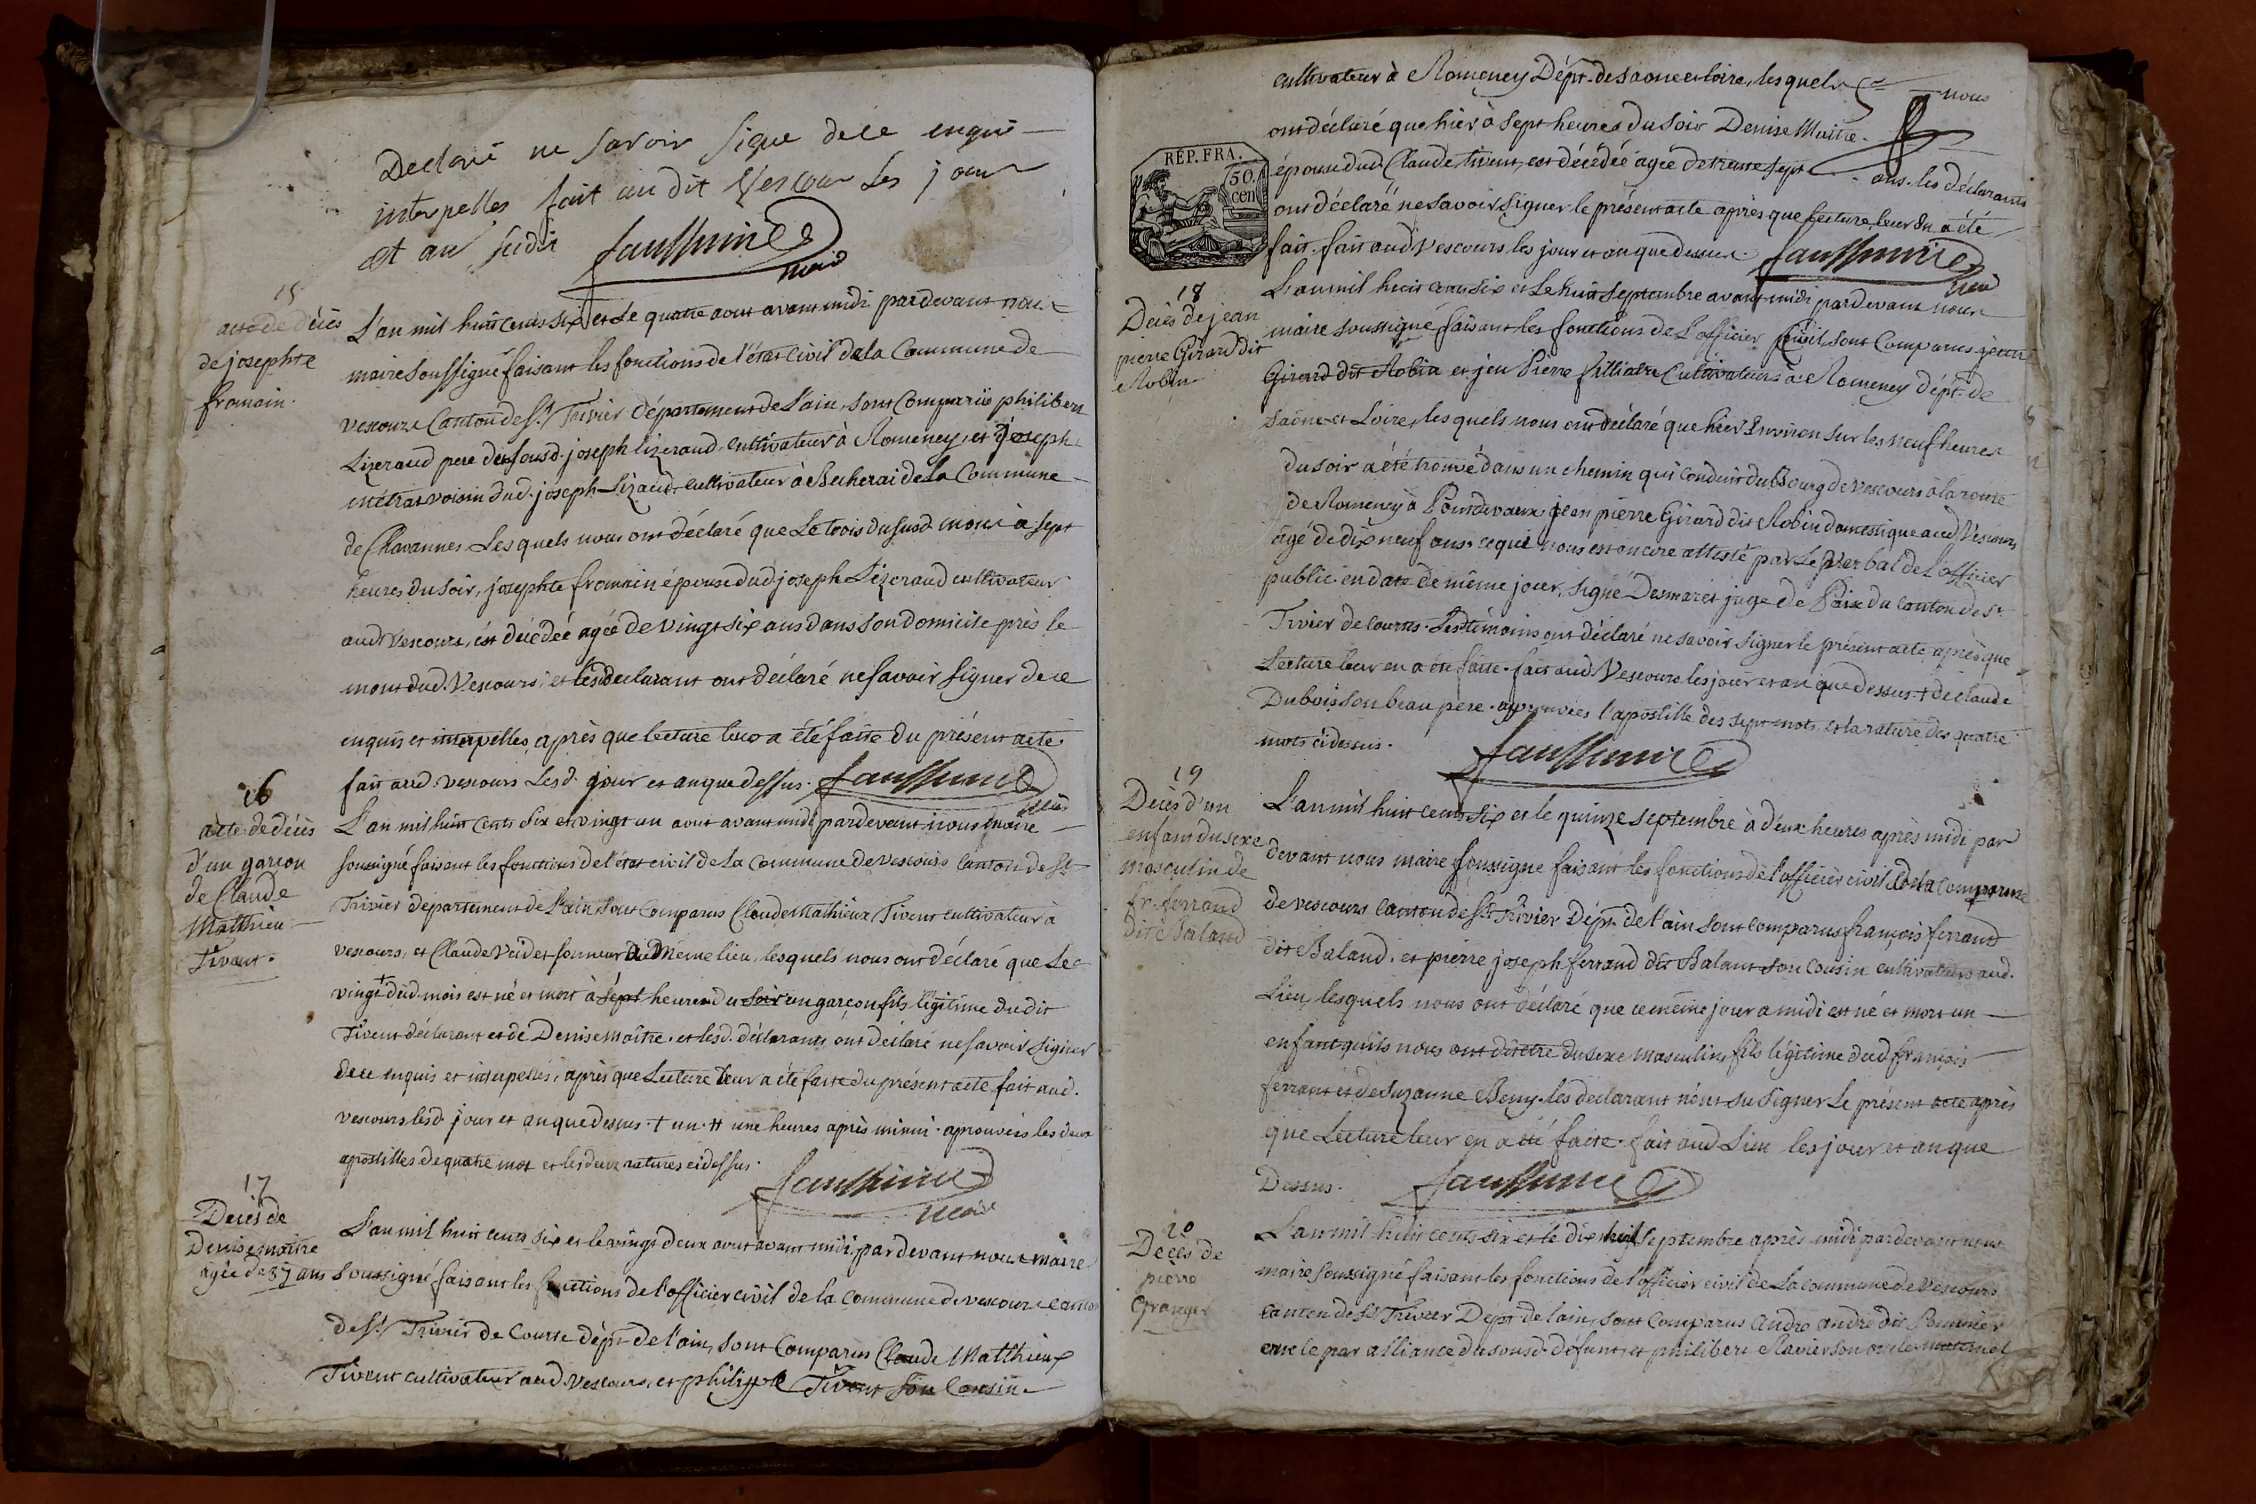 Declaré ne savoir signe dece enquis
interpelles fait au dit Vescour les jour
et an susdit fausshurier
maire
15
acte de décès
de josephte
fromain.
L'an mil huit cents six et le quatre aout avant midi pardevant nous
maire soussigné faisant les fonctions de l'état civil de la Commune de
vescours Canton de St. Trivier département de l'ain, sont comparus philibert
Lizeraud pere du susd. joseph lizeraud cultivateur à Romeney, et joseph
voisin dud. joseph Lizeraud, cultivateur à de la Commune
de Chavannes. Lesquels nous ont déclaré que le trois du susd. mois à sept
heures du soir, josephte fromain épouse dud. joseph Lizeraud cultivateur
aud. Vescours, est décédée agée de vingt six ans dans son domicile près le
mont dud. Vescours; et lesd declarant ont déclaré ne savoir signer dece
enquis et interpelles, après que lecture leur a été faite du présent acte
fait aud. vescours lesd. jour et an que dessus.
16
acte de décès
d'un garcon
de Claude
Matthieu
Tivent.
L'an mil huit cents six et vingt un aout avant midi pardevant nous maire
soussigné faisant les fonctions de l'état civil de la Commune de vescours canton de St
Trivier département de l'ain sont comparus Claude Mathieux Tivent cultivateur à
vescours, et Claude Veidet sonneur du Même lieu, lesquels nous ont déclaré que le
vingt + dud. mois est né et mort à sept heures du soir un garçon fils légitime du dit
Tivent déclarant et de Denise maître. et lesd. déclarants ont déclaré ne savoir signer
dece enquis et interpellés, après que Lecture leur a été faite du présent acte fait aud.
vescours lesd. jour et an que dessus. + un. ++ une heures après minui. aprouvés les deux
apostilles de quatre mot et les deux ratures cidessus.
maire
17
Décès de
Denise maitre
âgée de 37 ans
L'an mil huit cents six et le vingt deux aout avant midi, pardevant nous maire
soussigné faisant les fonctions de l'officier civil de la commune de vescours canton
de St. Trivier de Courte dépt. de l'ain, sont comparus Claude Matthieux
Tivent cultivateur aud. Vescours, et philippe Tivent son Cousin
cultivateur à Romeney Dépt. de saone et loire, lesquels nous
ont déclaré que hier à sept heures du soir Denise Maitre
RÉP. FRA.
50
cen
épouse dud. Claude Tivent, est décédée agée de trente sept ans. les déclarants
ont déclaré ne savoir signer le présent acte après que lecture leur en a été
fait. fait aud. Vescours les jour et an que dessus.
18
Décès de jean
pierre Girard dit
Robin
L'an mil huit cents six et le huit septembre avant midi pardevant nous
maire soussigné faisant les fonctions de l'officier civil, sont Comparus
Girard dit Robin et jen Pierre Cultivateurs à Romeney dépt. de
Saône et Loire, lesquels nous ont déclaré que hier Environ sur les neuf heures
du soir a été trouvé dans un chemin qui conduit du Bourg de vescours à la route
de Romeney à Pontdevaux, jean pierre Girard dit Robin domestique aud. Vescours,
âgé de dix neuf ans. ce qui nous est encore attesté par le verbal de l'officier
public en date de même jour, signé Desmaret juge de Paix du canton de St
Trivier de Courtes. Lesd témoins ont déclaré ne savoir signer le présent acte, après que
Lecture leur en a été faite. fait aud. Vescours les jour et an que dessus + de claude
Dubois son beau pere. approuvées l'apostille des sept mots et la rature des quatre
mots cidessus.
19
Décès d'un
enfant du sexe
masculin de
fr. ferrand
dit Baland
L'an mil huit cent six et le quinze septembre à deux heures après midi par
devant nous maire soussigné faisant les fonctions de l'officier civil de la commune
de vescours canton de St. Trivier Dépt. de l'ain sont comparus françois ferrand
dit Baland. et pierre joseph ferrand dit Balant son cousin cultivateurs aud.
Lieu, lesquels nous ont déclaré que ce même jour a midi est né et mort un
enfant quils nous ont dit être du sexe masculin, fils légitime dud. françois
ferrant et de Suzanne Beny. les declarant n'ont su signer le présent acte après
que Lecture leur en a été faite. fait aud Lieu les jour et an que
Dessus.
20
Décès de
pierre
Granger
L'an mil huit cents six et le dix huit septembre après midi pardevant nous
maire soussigné faisant les fonctions de l'officier civil de la commune de Vescours
canton de St. Trivier Dépt. de l'ain, sont comparus andré andré dit
oncle par alliance du susd. défunt, et philibert Ravier son oncle maternel